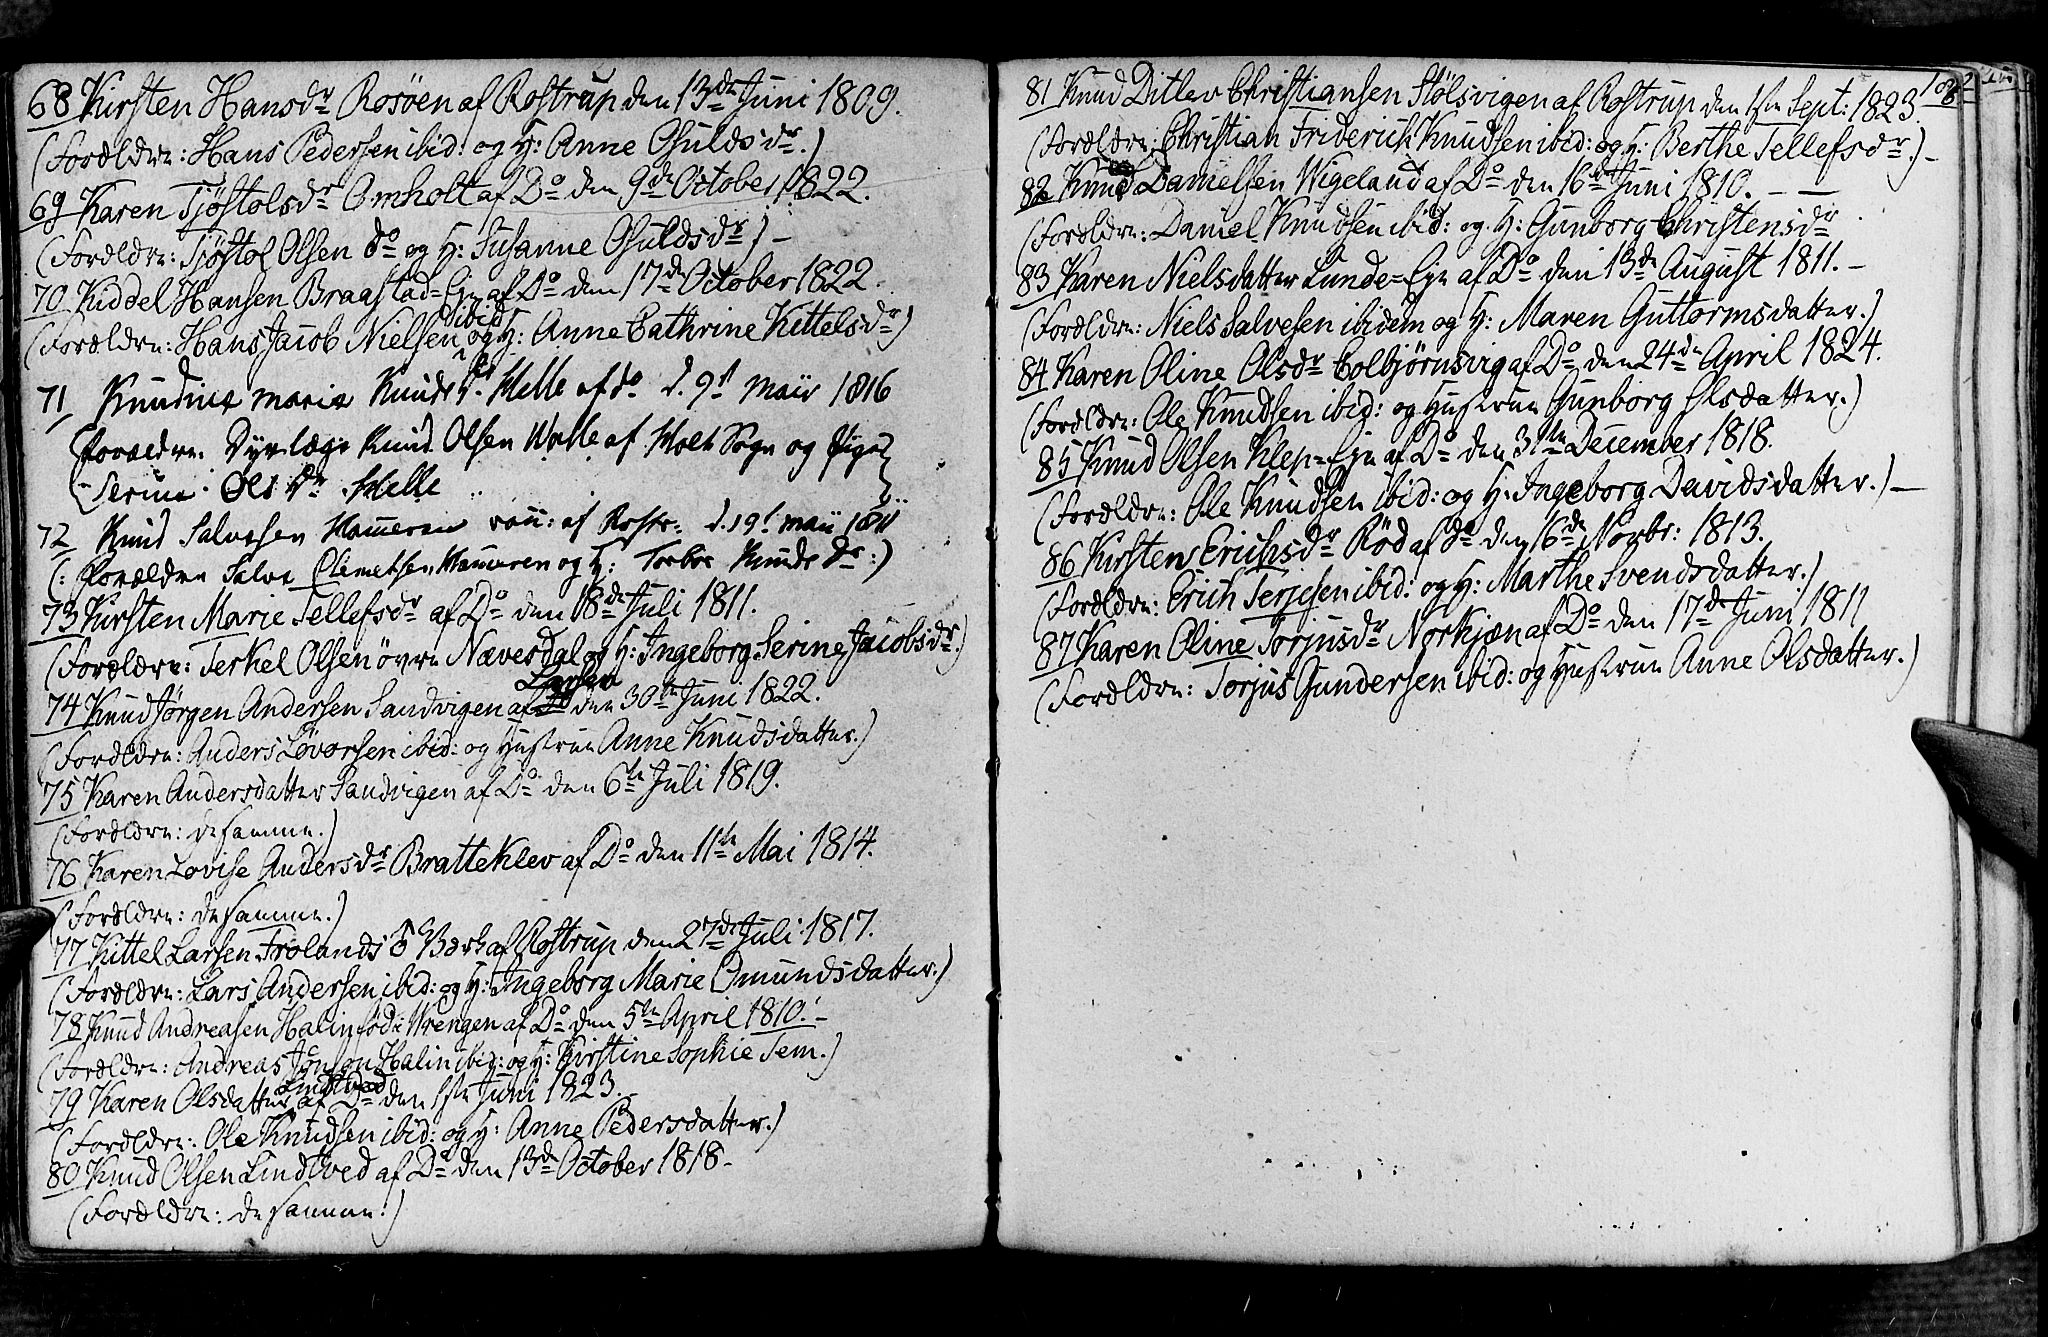 68 Kirsten Hansdr Rosöen af Rostrup den 13de Juni 1809.
(Forældre: Hans Pedersen ibid: og H: Anne Osuldsdr.)
69 Karen Tjöstolsdr Omholt af Do den 9de October 1822.
(Forældre: Tjöstol Olsen do og H: Susanne Osuldsdr) –
70 Kiddel Hansen Braastad-Eje af Do den 17de October 1822.
(Forældre: Hans Jacob Nielsen ibid og H: Anne Cathrine Kittelsdr)
71, Knudine Marie Knudsdr. Helle af do d. 9d Maii 1816
(Forældre. Dyrlæge Knud Olsen Walle af Holt Sogn og Pige
Serine Olsdr Helle
72 Knud Salvesen Hammeren af Rostr: d. 19d Maii 1811
(: Forældre Salve Clemetsen Hammeren og H: Torbor Knudsdr:)
73 Kirsten Marie Tellefsdr af Do den 18de Juli 1811.
(Forældre: Terkel Olsen övre Nævesdal og H: Ingeborg Serine Jacobsdr.)
74 Knud Jörgen Andersen Sandvigen af Do den 30te Juni 1822.
(Forældre: Anders Lövorsen ibid: og Hustrue Anne Knudsdatter.)
75 Karen Andersdatter Sandvigen af Do den 6te Juli 1819.
(Forældre: de samme.)
76 Karen Lovise Andersdr Bratteklev af Do den 11te Mai 1814.
(Forældre: de samme.)
77 Kittel Larsen Frolands Værk af Rostrup den 27de Juli 1817.
(Forældre: Lars Andersen ibid: og H: Ingeborg Marie Omundsdatter.)
78 Knud Andreasen Halin föd i Wrengen af Do den 5te April 1810. –
(Forældre: Andreas Jonson Halin ibid: og H: Kirstine Sophie Tem.)
79 Karen Olsdatter Lindtved af Do den 1ste Juni 1823.
(Forældre: Ole Knudsen ibid: og H: Anne Pedersdatter.)
80 Knud Olsen Lindtved af Do den 13de October 1818 –
(Forældre: de samme.)
81 Knud Ditlev Christiansen Stölsvigen af Rostrup den 1ste Sept: 1823.
(Forældre: Christian Friderich Knudsen ibid: og H: Berthe Tellefsdr.) –
82 Knud Danielsen Wigeland af Do den 16de Juni 1810. – –
(Forældre: Daniel Knudsen ibid: og H: Gunborg Christensdr
83 Karen Nielsdatter Lunde-Eje af Do den 13de August 1811. –
(Forældre: Niels Salvesen ibidem og H: Maren Guttormsdatter.)
84 Karen Oline Olsdr Colbjörnsvig af Do den 24de April 1824.
(Forældre: Ole Knudsen ibid: og Hustrue Gunborg Olsdatter.)
85 Knud Olsen Klep-Eje af Do den 31te December 1818.
(Forældre: Ole Knudsen ibid: og H: Ingeborg Davidsdatter.) –
86 Kirsten Erichsdr Röd af do den 16de Novbr: 1813.
(Forældre: Erich Terjesen ibid: og H: Marthe Svendsdatter.)
87 Karen Oline Torjusdr Norkjæn af Do den 17de Juni 1811
(Forældre: Torjus Gundersen ibid: og Hustrue Anne Olsdatter.)